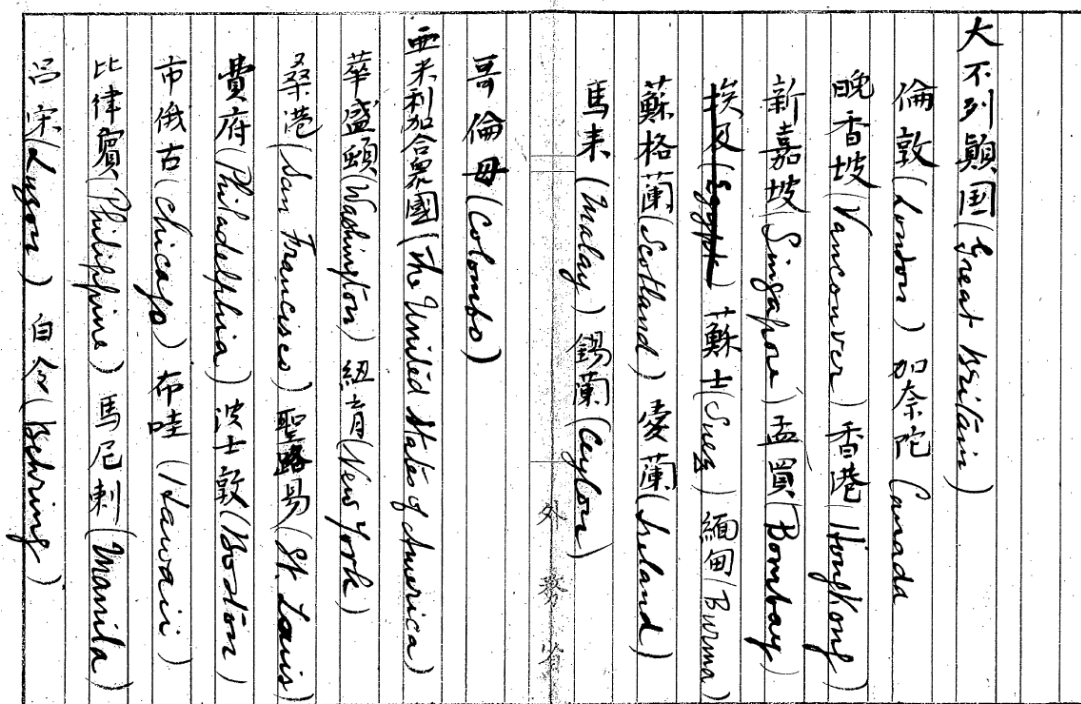 大不列顛国(Great Britain)
倫敦(London)加奈陀Canada
晩香坡(Vancouver)香港(HongKong)
新嘉坡(Singapore)孟買(Bombay)
埃及(Egypt)蘇士(Suez)緬甸(Burma)
蘇格蘭(Scotland)愛蘭(Ireland)
馬来(Malay)錫蘭(Ceylon)
哥倫母(Colombo)
外務省
亜米利加合衆國(The United States of America)
華盛頓(Washington)紐育(New York)
桑港(San Francisco)聖路易(St. Louis)
費府(Philadelphia)波士敦(Boston)
市俄古(Chicago)布哇(Hawaii)
比律賓(Philippine)馬尼剌(Manila)
呂宋(Luzon)白令(Behring)